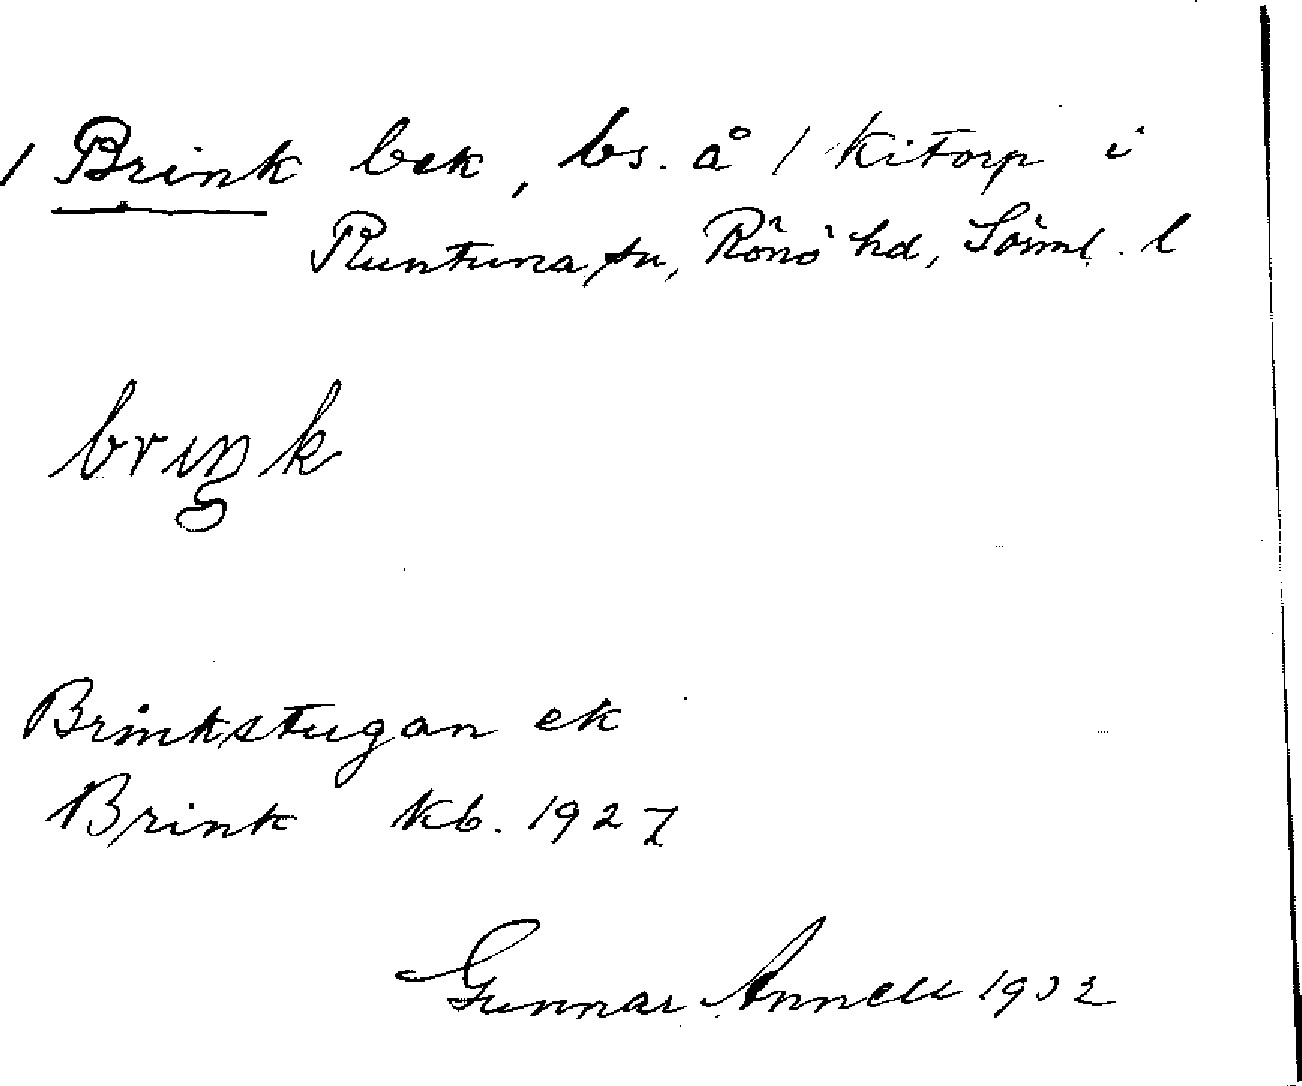 / Brink bek, bs. å / Kitorp i
Runtuna sn, Rönö hd, Sörml. l
briŋk
Brinkstugan ek
Brink kb. 1927
Gunnar Annell 1932